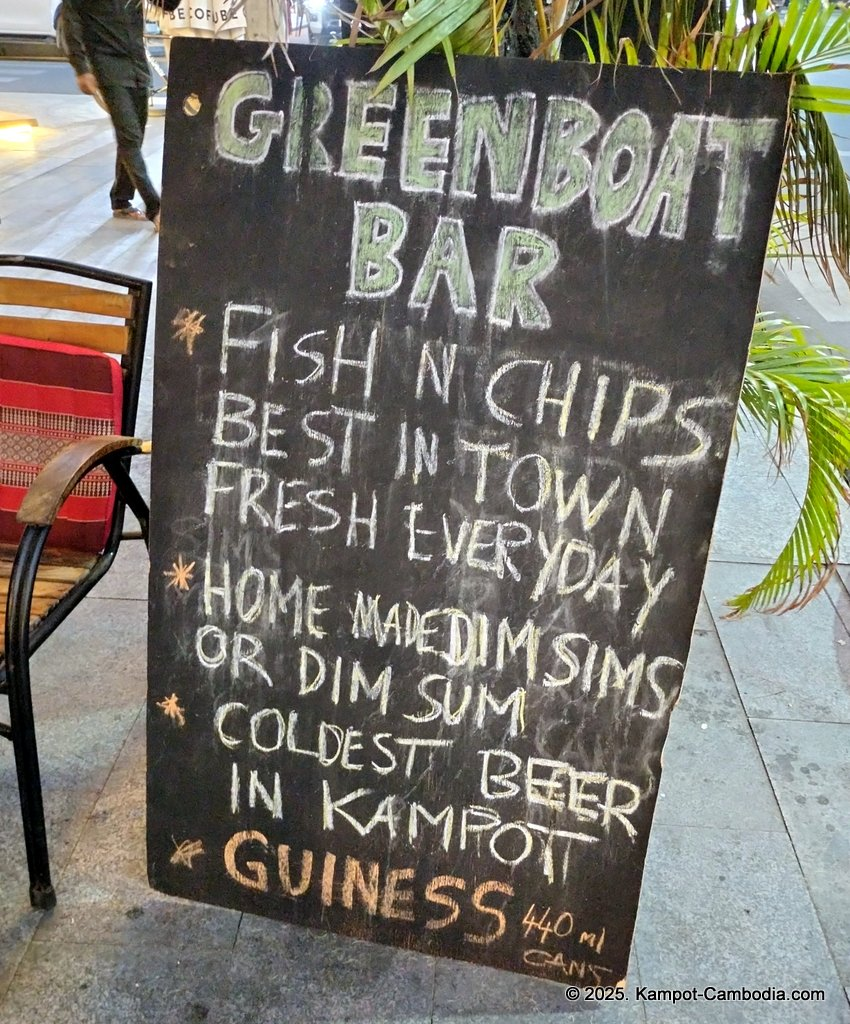 BECOFUBE
GREENBOAT
BAR
FISH N CHIPS
BEST IN TOWN
FRESH EVERYDAY
HOME MADE DIM SIMS
OR DIM SUM
COLDEST BEER
IN KAMPOT
GUINESS 440 ml
CANS
© 2025. Kampot-Cambodia.com